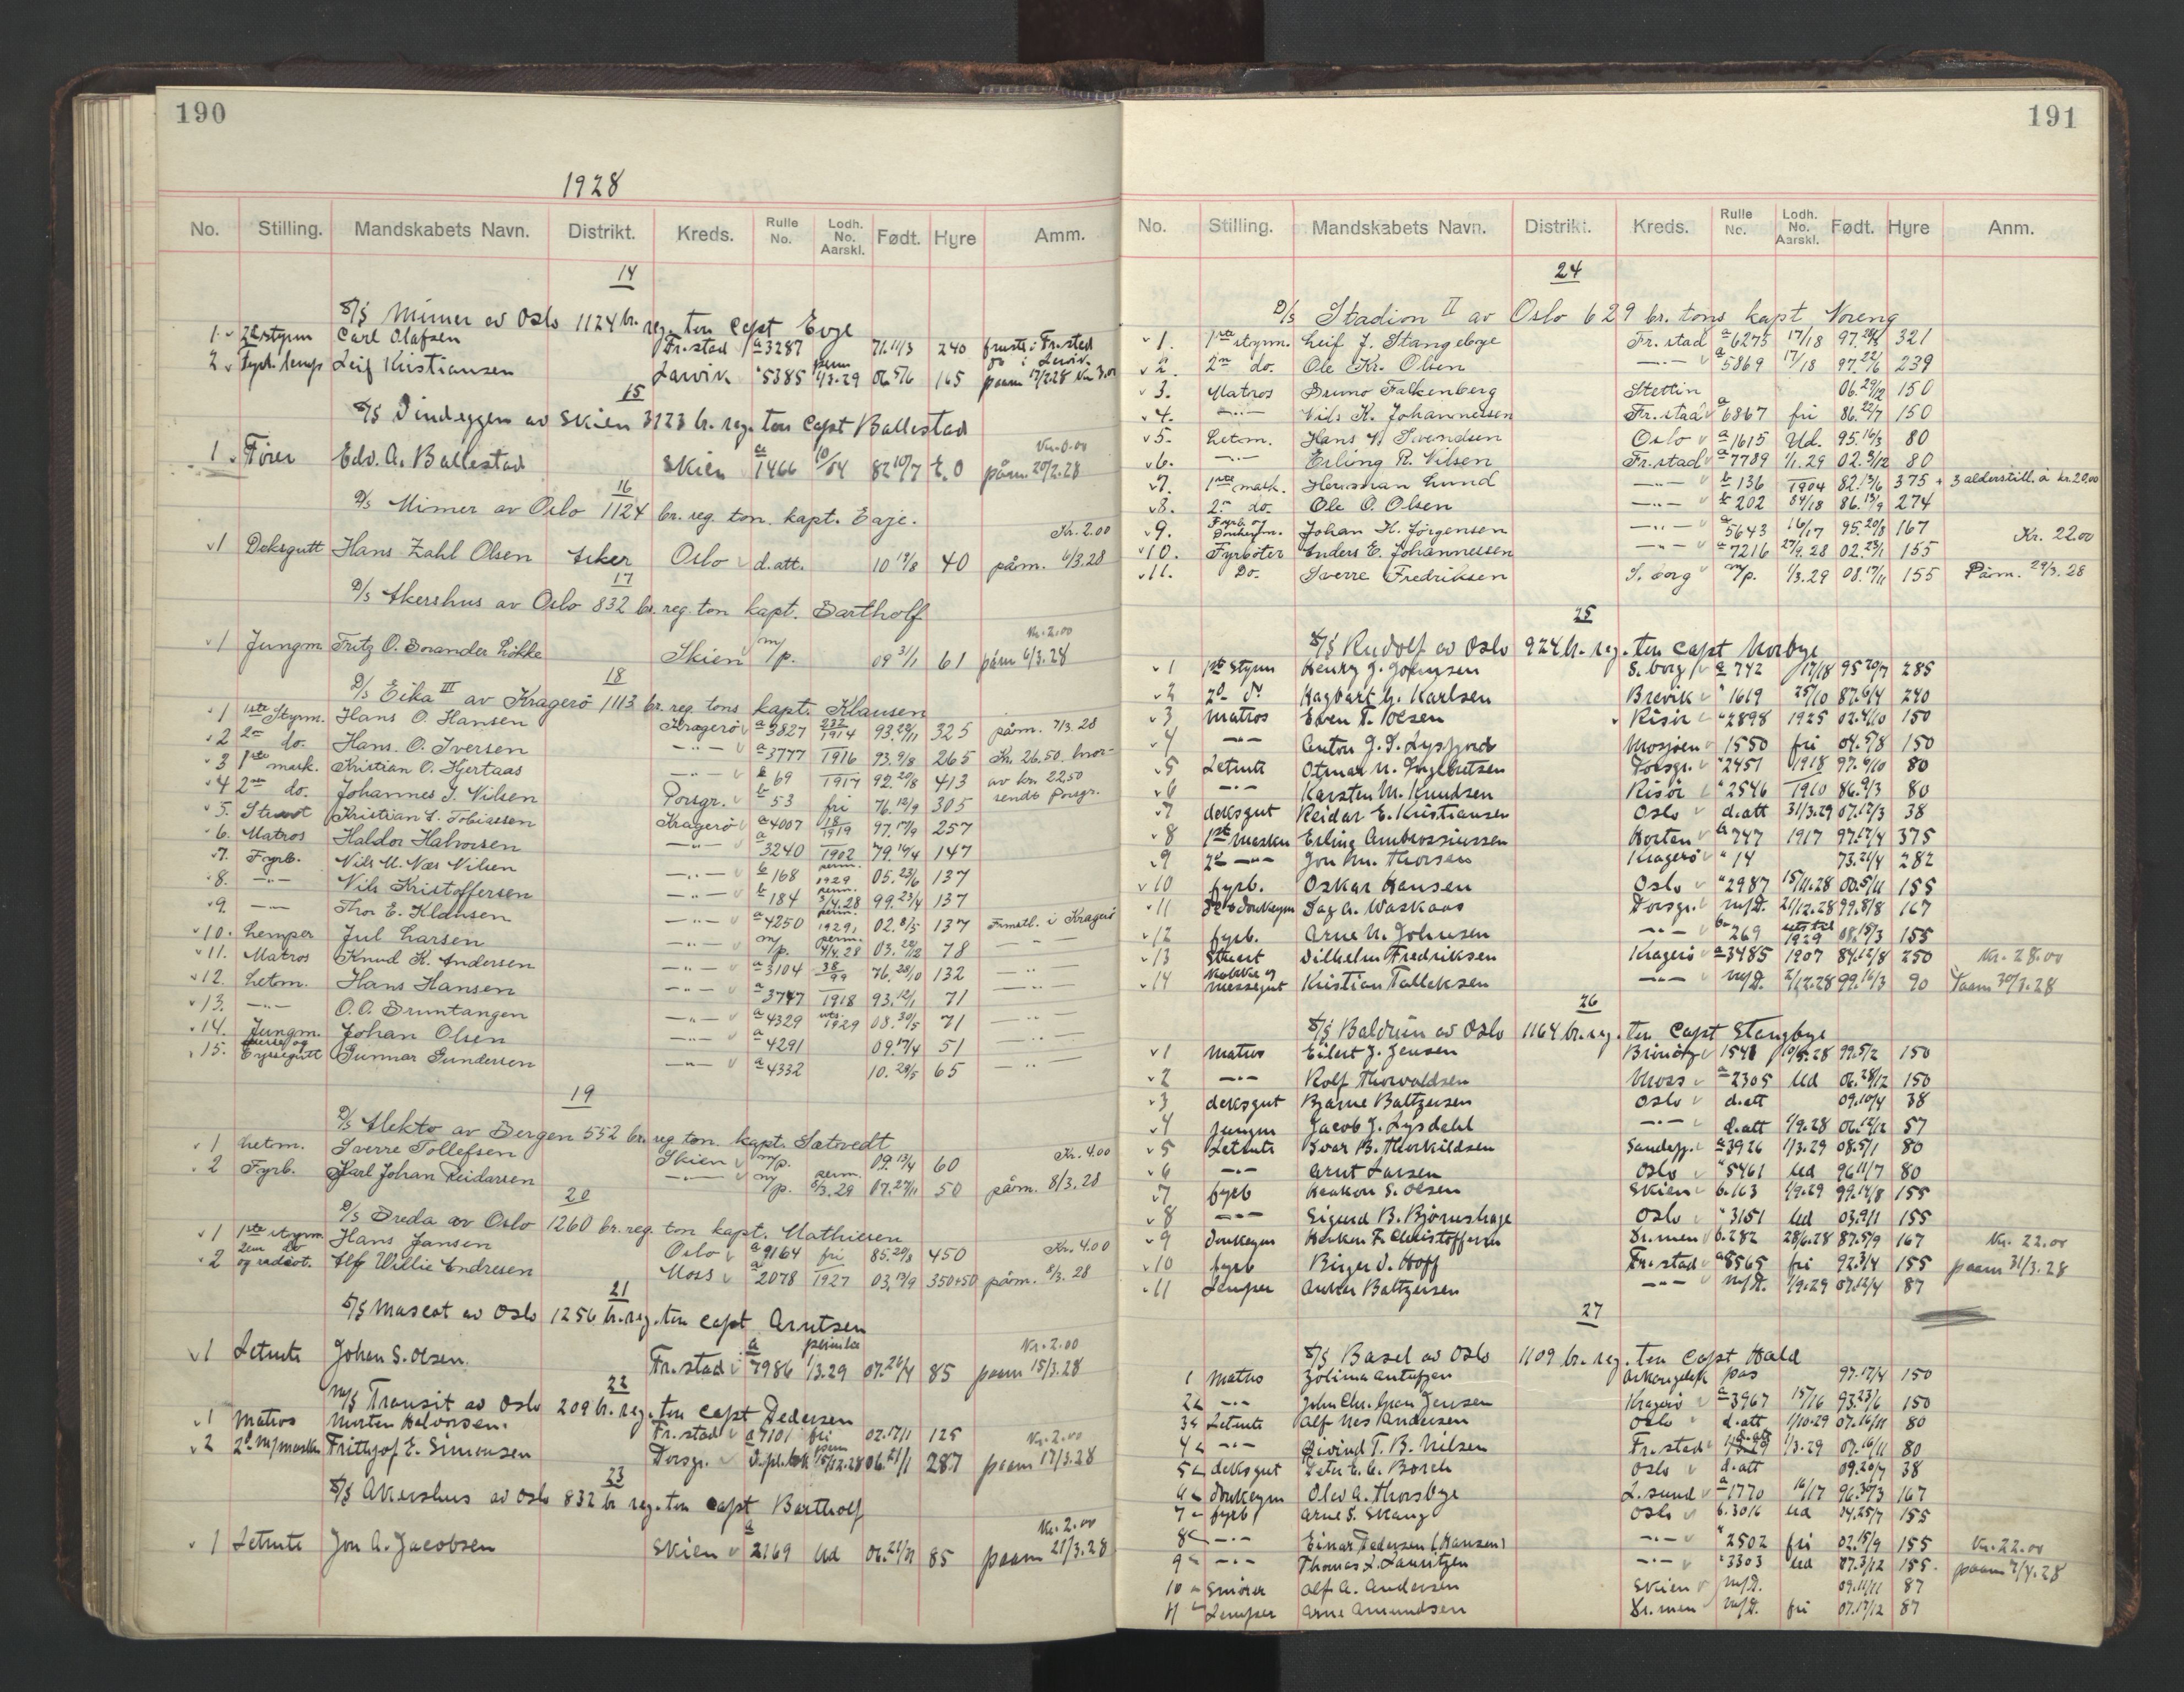 190
1928
No. Stilling. Mandskabets Navn. Distrikt. Kreds. Rulle No. Lodh. No. Aarskl. Født. Hyre Amm.
14
S/S Mimer av Oslo 1124 br. reg. ton Capt Evje
1 2d styrm Carl Olafsen Fr.stad a 3287 71.11/3 240 frustl. i Fr.stad
2 Leif Kristiansen Larvik " 5385 perm 1/3.29 06.5/6 165 paam 17/2.28 Kr 3.00
15
S/S Dindeggen av Skien 3123 br. reg. ton Capt Ballestad
Kr. 0.00
1 Fører Edv. A. Ballestad Skien a 1466 10/04 82 10/7 E.O påm. 20/2.28
16
D/S Mimer av Oslo 1124 br. reg. ton. kapt. Evje.
Kr. 2.00
1 Deksgutt Hans Zahl Olsen Aker Oslo d.att. 10 19/8 40 påm. 6/3.28
17
D/S Akershus av Oslo 832 br. reg. ton kapt. Bartholf
Kr. 2.00
1 Jungm. Fritz O. Borander Likke Skien m/p. 09 31/1 61 påm 6/3.28
18
D/S Eika III av Kragerö 1113 br. reg. tons kapt. Klausen
1 1ste Styrm. Hans O. Hansen Kragerö a 3827 232/1914 93.29/11 325 påm. 7/3.28
2 2n do. Hans. O. Iversen —"— a 3777 1916 93.9/8 265 Kr. 26.50 hvor-
3 1ste mask. Kristian O. Hjertaas —"— b 69 1917 92.20/8 413 av kr. 22.50
4 2en do. Johannes I. Nilsen Porsgr. b 53 fri 76.12/9 305 sendt Porsgr.
5. Stuart Kristian L. Tobiassen Kragerö a 4007 18/1919 97.17/9 257
6. Matros Haldor Halvorsen —"— a 3240 1902 79.14/4 147
7. Fyrb. Nils M. Næs Nilsen —"— b 168 perm. 1929 05.23/6 137
8. —"— Nils Kristoffersen —"— b 184 perm. 3/4.28 99.23/4 137
9. —"— Thor E. Klausen —"— a 4250 perm. 1929 02.8/5 137 Frmstl. i Kragerö
10. Lemper Jul Larsen —"— m/p. perm. 4/4.28 03.20/12 78 —"—
11. Matros Knud K. Andersen —"— a 3104 38/99 76.28/10 132 —"—
12. Letm. Hans Hansen —"— a 3747 1918 93.12/1 71 —"—
13. —"— O.O. Bruntangen —"— a 4329 uts. 1929 08.30/5 71 —"—
14. Jungm. Johan Olsen —"— a 4291 09.17/4 51 —"—
15. Messe og Byssegutt Gunnar Gundersen —"— a 4332 10.28/5 65 —"—
19
D/S Alekto av Bergen 552 br. reg. ton. kapt. Sætvedt
1 Letm. Sverre Tollefsen Skien m/p. 09.13/4 60 Kr. 4.00
2 Fyrb. Karl Johan Reidarsen —"— m/p. perm. 6/3.29 07.27/11 50 påm. 8/3.28
20
D/S Breda av Oslo 1260 br. reg. ton kapt. Mathiesen
1 1ste styrm Hans Jansen Oslo a 9164 fri 85.20/8 450 Kr. 4.00
2 2en do og radiot. Alf Willie Endresen Moss a 2078 1927 03.19/9 350+50 påm. 8/3.28
21
S/S Mascot av Oslo 1256 br. reg. ton capt Arntsen
Kr. 2.00
1 Letmte Johan S. Olsen. Fr.stad a 7986 1/3.29 07.20/4 85 paam 15/3.28
22
M/S Transit av Oslo 209 br. reg. ton capt Pedersen
1 Matros Morten Halvorsen. Fr.stad a 7101 fri 02.17/11 125 Kr. 2.00
2 2d m/maskn Frithjof E. Simonsen Porsgr. 15/12.28 06.21/1 287 paam 17/3.28
23
S/S Akershus av Oslo 832 br reg. ton capt Bartholf
Kr. 2.00
1 Letmte Jon A. Jacobsen Skien a 2169 Ud 06.21/11 85 paam 21/3.28
191
No. Stilling. Mandskabets Navn. Distrikt. Kreds. Rulle No. Lodh. No. Aarskl. Født. Hyre Anm.
24
D/S Stadion II av Oslo 629 br. tons kapt Noreng
1. 1ste styrm. Leif J. Stangebye Fr.stad a 6275 17/18 97.28/5 321
2. 2n do. Ole Kr. Olsen —"— a 5869 17/18 97.22/6 239
3. Matros Bruno Falkenberg Stettin 06.29/12 150
4. —"— Nils K. Johannessen Fr.stad a 6867 fri 86.22/7 150
5. Letm. Hans H. Svendsen Oslo a 1615 Ud. 95.16/3 80
6. —"— Erling R. Nilsen Fr.stad a 7789 1/1.29 02.5/12 80
7. 1ste mask. Herman Lund —"— b 136 1904 82.13/6 375 + 3 alderstill. á kr. 20.00
8. 2n do. Ole O. Olsen —"— b 202 84/18 86.13/9 274
9. Fyrb. og Donkeym. Johan K. Jørgensen —"— a 5643 16/17 95.20/8 167 Kr. 22.00
10. Fyrböter Anders E. Johannessen —"— a 7216 27/9.28 02.23/1 155
11. Do. Sverre Fredriksen S.borg m/p. 1/3.29 08.17/11 155 Påm. 29/3.28
25
S/S Rudolf av Oslo 924 br. reg. ton Capt Norbye
1 1ste Styrm Henry J. Johnsen S.borg a 742 17/18 95 20/7 285
2 2d do Hagbart G. Karlsen Brevik " 1619 25/10 87.6/4 240
3 Matros Even T. Olsen Risör " 2898 1925 02.4/10 150
4 —"— Anton J. S. Lysfjord Mosjøen 1550 fri 04.5/8 150
5 Letmte Otmar N. Ingebretsen Porsgr. " 2451 1918 97.6/10 80
6 —"— Karsten M. Knudsen Risör " 2546 1910 86.9/3 80
7 deksgut Reidar E. Kristiansen Oslo d.att 31/3.29 07.17/3 38
8 1ste masken Erling Ambrossiussen Horten b 747 1917 97.17/4 375
9 2d —"— Jon Kr. Thorsen Kragerö " 14 73.21/4 282
10 fyrb. Oskar Hansen Oslo " 2987 15/11.28 00.5/11 155
11 Dag A. Waskaas Porsgr. m/p. 21/12.28 99.8/8 167
12 fyrb. Arne N. Johnsen —"— 269 1929 08.18/3 155
13 Stuart Vilhelm Fredriksen Kragerö a 3485 1907 84.12/8 250 Kr. 28.00
14 Kokke og messegut Kristian Tallaksen —"— m/p. 2/12.28 99.16/3 90 Paam 30/3.28
26
S/S Baldrian av Oslo 1164 br. reg. ton Capt Stangbye
1 Matros Eilert J. Jensen 1541 10/5.28 99.5/2 150
2 —"— Rolf Thorvaldsen Moss a 2305 Ud 06.28/12 150
3 deksgut Bjarne Baltzersen Oslo d.att 09.10/4 38
4 jungm Jacob J. Lysdahl —"— d.att 1/9.28 06.12/12 57
5 Letmte Ivar B. Thorkildsen Sandefj. a 3926 1/3.29 08.5/1 80
6 —"— Arnt Larsen Oslo " 5461 Ud 96 11/7 80
7 fyrb Haakon S. Olsen Skien b. 163 1/9.29 99.14/8 155
8 —"— Sigurd B. Bjørnshage Oslo " 3151 Ud 03.9/11 155
9 Donkeym Haakon F. Christoffersen Dr.men b. 282 28/6.28 87.5/9 167 Kr. 22.00
10 fyrb Birger D. Hoff Fr.stad a 8565 fri 92.3/4 155 paam 31/3.28
11 Lemper Anton Baltzersen —"— m/p. 1/9.29 07.12/4 87
27
S/S Basel av Oslo 1109 br. reg. ton Capt Hald
1 Matros Zolima Antufjen Arkangelsk pas 97.17/4 150
2 —"— John Chr. Gran Jensen Kragerö a 3967 15/16 93.23/6 150
3 Letmte Alf Nes Andersen Oslo d.att 1/10.29 07.16/11 80
4 —"— Øivind T. B. Nilsen Fr.stad d.att 1/3.29 07.16/11 80
5 deksgut Peter C. C. Borch Oslo d.att 09.20/7 38
6 Donkeym Olav A. Thorsbye L.sund a 1770 16/17 96.30/3 167
7 fyrb Arne S. Skaug Oslo b. 3016 Ud 04.25/7 155
8 —"— Einar Pedersen (Hansen) —"— " 2502 fri 02.15/9 155 Kr. 22.00
9 —"— Thomas L. Lauritzen —"— " 3303 Ud 07.3/12 155. paam 7/4.28
10 Smörer Alf A. Andersen Skien m/p. 09.11/11 87
11 Lemper Arne Amundsen Dr.men m/p. fri 07.17/12 87